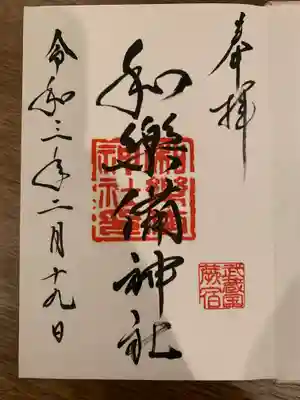 奉拝
武蔵国
蕨宿
和樂備神社
和樂備
神社印
令和三年二月十九日